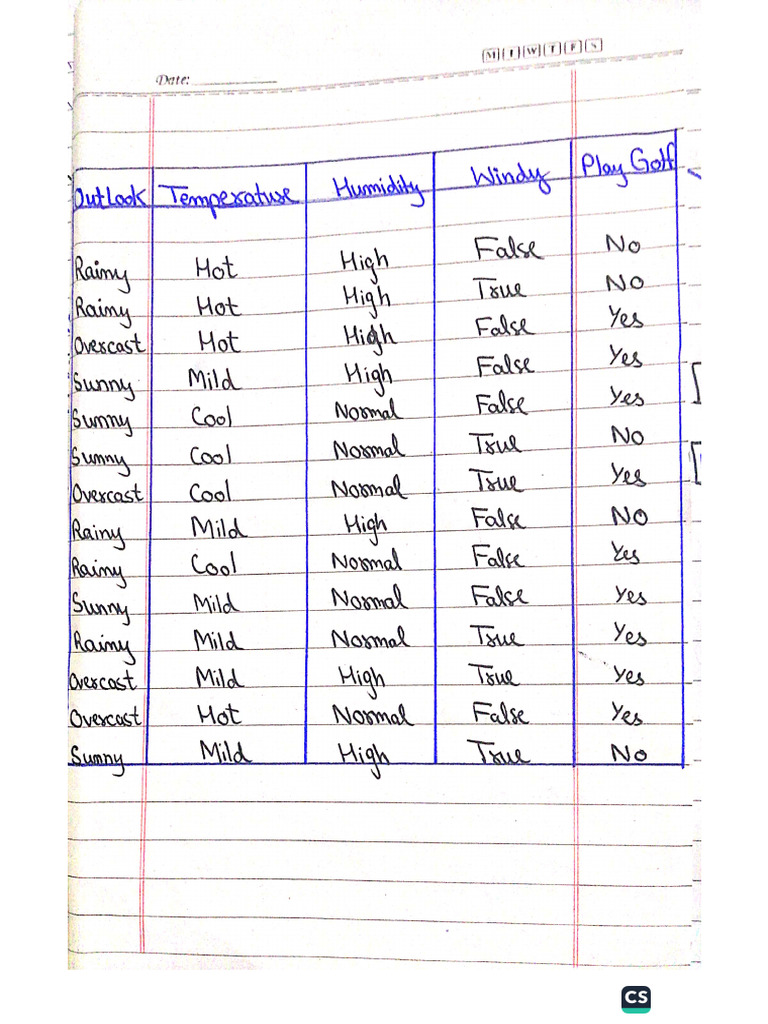 M T W T F S
Date:
OutLook Temperature Humidity Windy Play Golf
Rainy Hot High False No
Rainy Hot High True No
Overcast Hot High False Yes
Sunny Mild High False Yes
Sunny Cool Normal False Yes
Sunny Cool Normal True No
Overcast Cool Normal True Yes
Rainy Mild High False No
Rainy Cool Normal False Yes
Sunny Mild Normal False Yes
Rainy Mild Normal True Yes
Overcast Mild High True Yes
Overcast Hot Normal False Yes
Sunny Mild High True No
CS